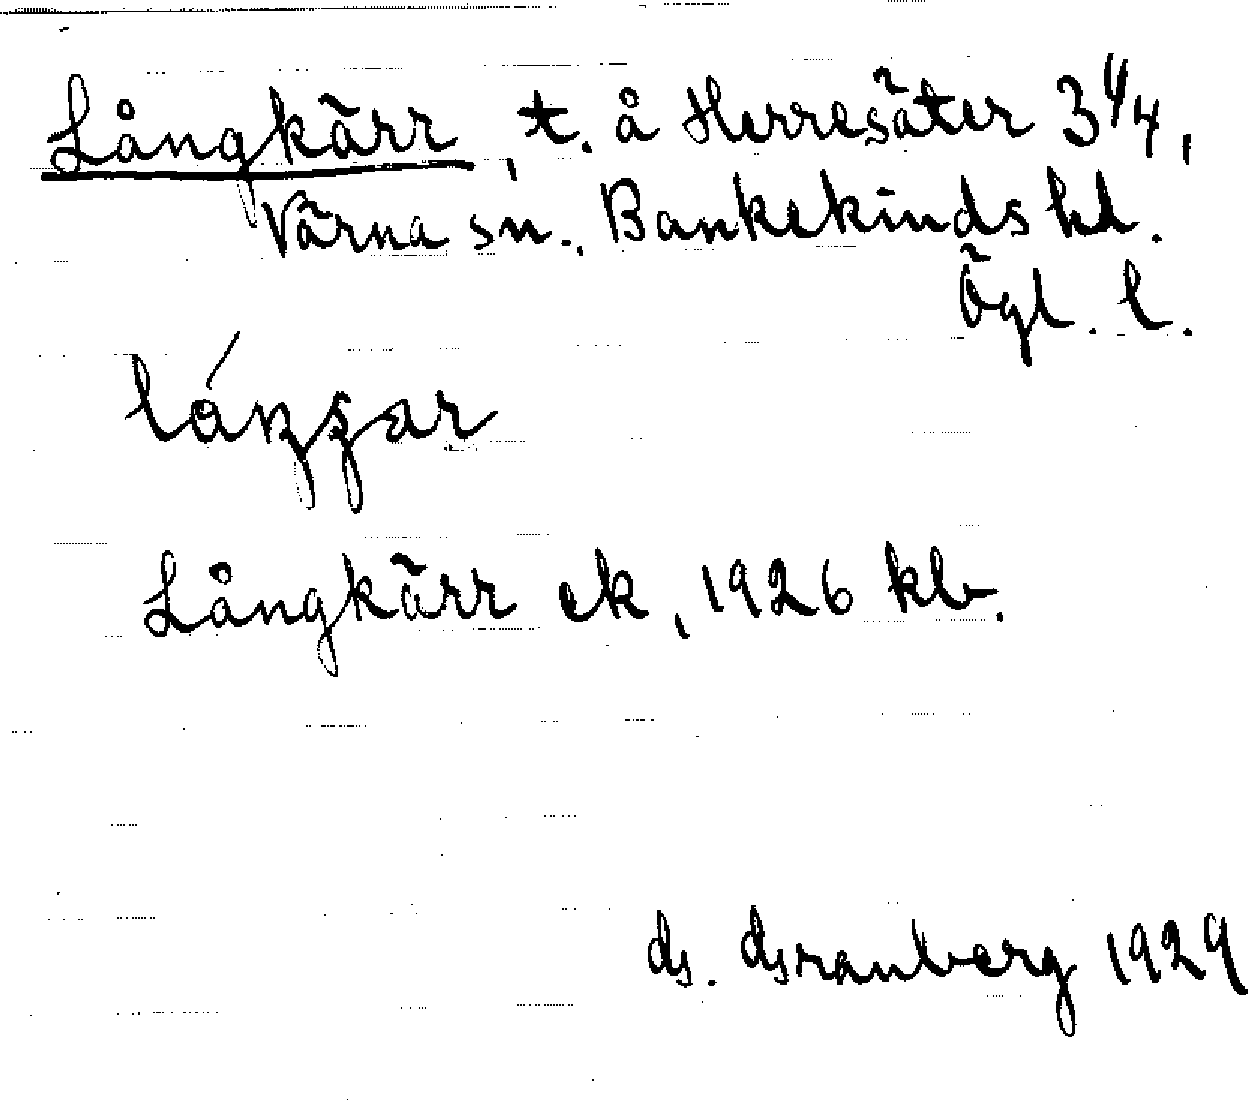 Långkärr, t. å Herresäter 3 1/4,
Värna sn., Bankekinds hd.
Ögl. l.
Långkärr ek, 1926 kb.
1929